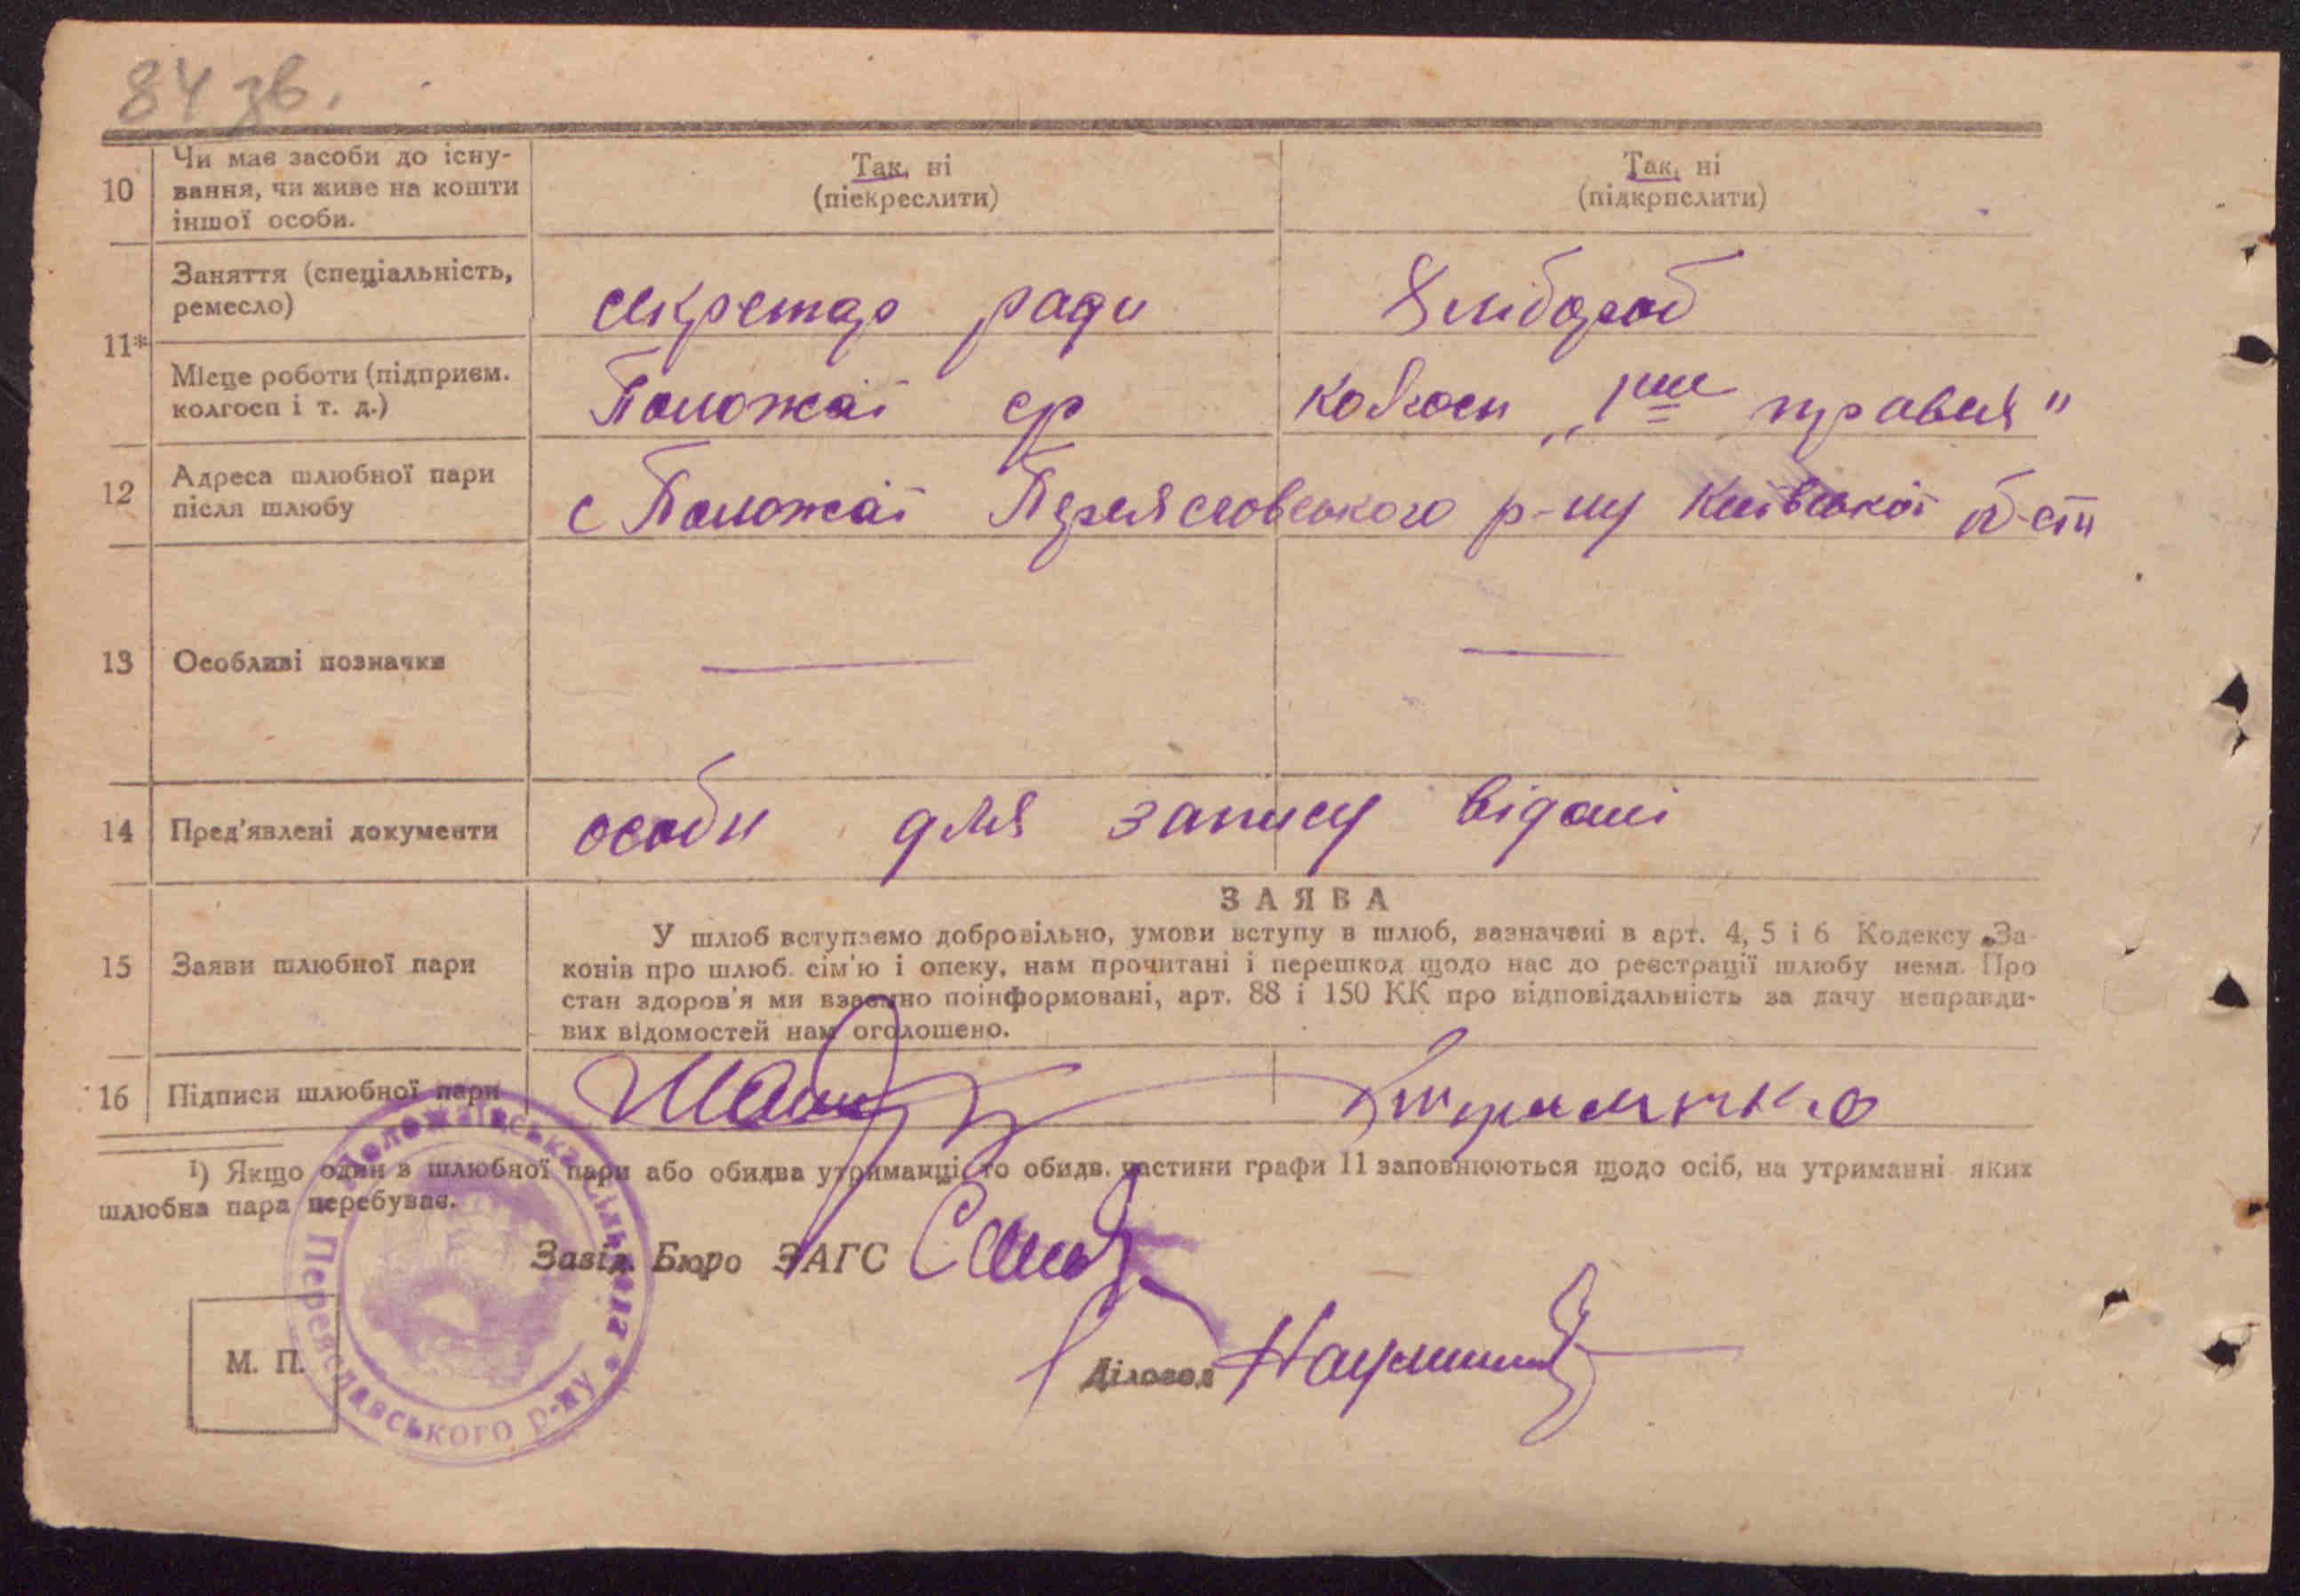 84 зв.
10 Чи має засоби до існу-
вання, чи живе на кошти
іншої особи.
Так, ні
(піекреслити)
Так, ні
(підкрпслити)
11*
Заняття (спеціальність,
ремесло)
секретар ради
Хлібороб
Місце роботи (підприєм.
колгосп і т. д.)
Положаї ср
Колгосп „1ше травня"
12 Адреса шлюбної пари
після шлюбу
с Положаї Переяславського р-ну Київської об-сти
13 Особливі позначки
14 Пред'явлені документи
особи для запису відомі
15 Заяви шлюбної пари
ЗАЯВА
У шлюб вступаємо добровільно, умови вступу в шлюб, зазначені в арт. 4, 5 і 6 Кодексу „За-
конів про шлюб. сім'ю і опеку, нам прочитані і перешкод щодо нас до реєстрації шлюбу нема. Про
стан здоров'я ми взаємно поінформовані, арт. 88 і 150 КК про відповідальність за дачу неправди-
вих відомостей нам оголошено.
16 Підписи шлюбної пари
1) Якщо один з шлюбної пари або обидва утриманці, то обидв. частини графи 11 заповнюються щодо осіб, на утриманні яких
шлюбна пара перебуває.
Завід. Бюро ЗАГС
Діловод
М. П.
Положаївська сільрада
Переяславського р-ну